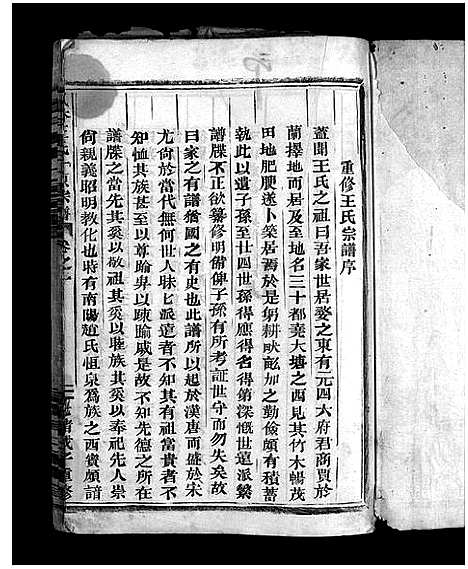 重修王氏宗譜序
蓋聞王氏之祖曰吾家世居婺之東有元四大府君商賈於
蘭擇地而居及至地名三十都堯大塘之西見其竹木暢茂
田地肥腴遂卜築居焉於是躬耕畎畝加之勤儉頗有積蓄
執此以遺子孫至廿四世孫得應得名得第深慨世遠派繁
譜牒不正欲纂修明備俾子孫有所考証世守而勿失矣故
曰家之有譜猶國之有史也此譜所以起於漢唐而盛於宋
尤尚於當代無何世人昧匕派遠者不知其有祖當貴者不
知恤其族甚至以尊踰卑以疎踰戚是故不知先德之所在
譜牒之當先其奚以敬祖其奚以睦族其奚以奉祀先人崇
尚親義昭明教化也時有南陽趙氏恒泉爲族之西賓頗諳